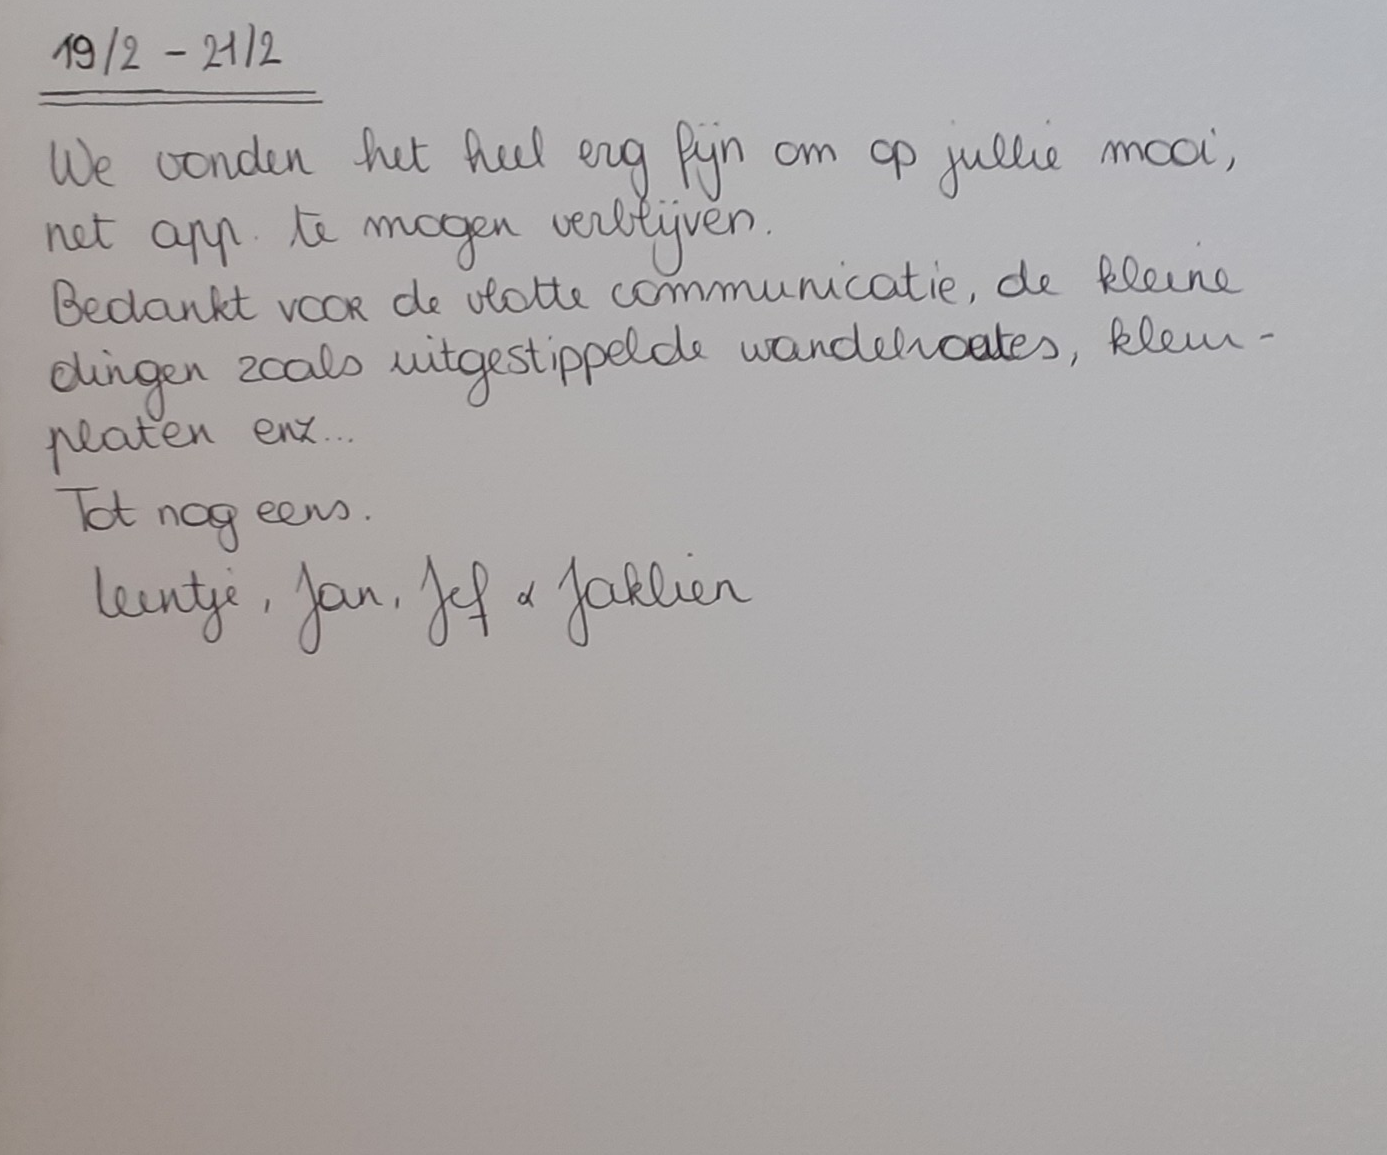 19/2 - 21/2
We vonden het heel erg fijn om op jullie mooi,
net app. te mogen verblijven.
Bedankt voor de vlotte communicatie, de kleine
dingen zoals uitgestippelde wandelroutes, kleur-
platen enz...
Tot nog eens.
Leentje, Jan, Jef & Jaklien